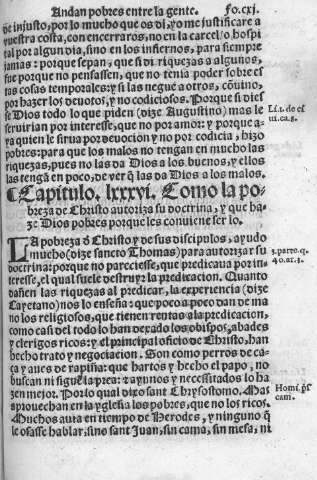 Andan pobres entre la gente. Fo.cxj.
de injusto, por lo mucho que os di, yo me justificare a
vuestra costa, con encerraros, no en la carcel o hospi
tal por algun dia, sino en los infiernos, para siempre
jamas: porque sepan, que si di riquezas a algunos,
fue porque no pensassen, que no tenia poder sobre es
tas cosas temporales: y si las negue a otros, cõuino,
por hazer los deuotos, y no codiciosos. Porque si dies
se Dios todo lo que piden (dize Augustino) mas le
seruirian por interesse, que no por amor: y porque a-
ya quien le sirua por deuocion y no por codicia, hizo
pobres: para que los malos no tengan en mucho las
riquezas, pues no las da Dios a los buenos, y ellos
las tengã en poco, de ver q̃ las da Dios a los malos.
Li.1. de ci
ui.ca.8.
Capitulo. lxxxvi. Como la po-
breza de Christo autoriza su doctrina, y que ha-
ze Dios pobres porque les conuiene ser lo.
LA pobreza d̃ Christo y de sus discipulos, ayudo
mucho (dize sancto Thomas) para autorizar su
doctrina: porque no pareciesse, que predicaua por in-
teresse, el qual suele destruyr la predicacion. Quanto
dañen las riquezas al predicar, la experiencia (dize
Cayetano) nos lo enseña: que poco a poco dan de ma
no los religiosos, que tienen rentas a la predicacion,
como casi del todo lo han dexado los obispos, abades
y clerigos ricos: y el principal oficio de Christo, han
hecho trato y negociacion. Son como perros de ca-
ça y aues de rapiña: que hartos y hecho el papo, no
buscan ni siguẽ la prea: ayunos y necessitados lo ha
zen mejor. Por lo qual dixo sant Chrysostomo. Mas
aprouechan en la yglesia los pobres, que no los ricos.
Muchos auia en tiempo de Herodes, y ninguno q̃
le osasse hablar, sino sant Juan, sin cama, sin mesa, ni
3.parte.q.
40.ar.3.
Homi.
cam.